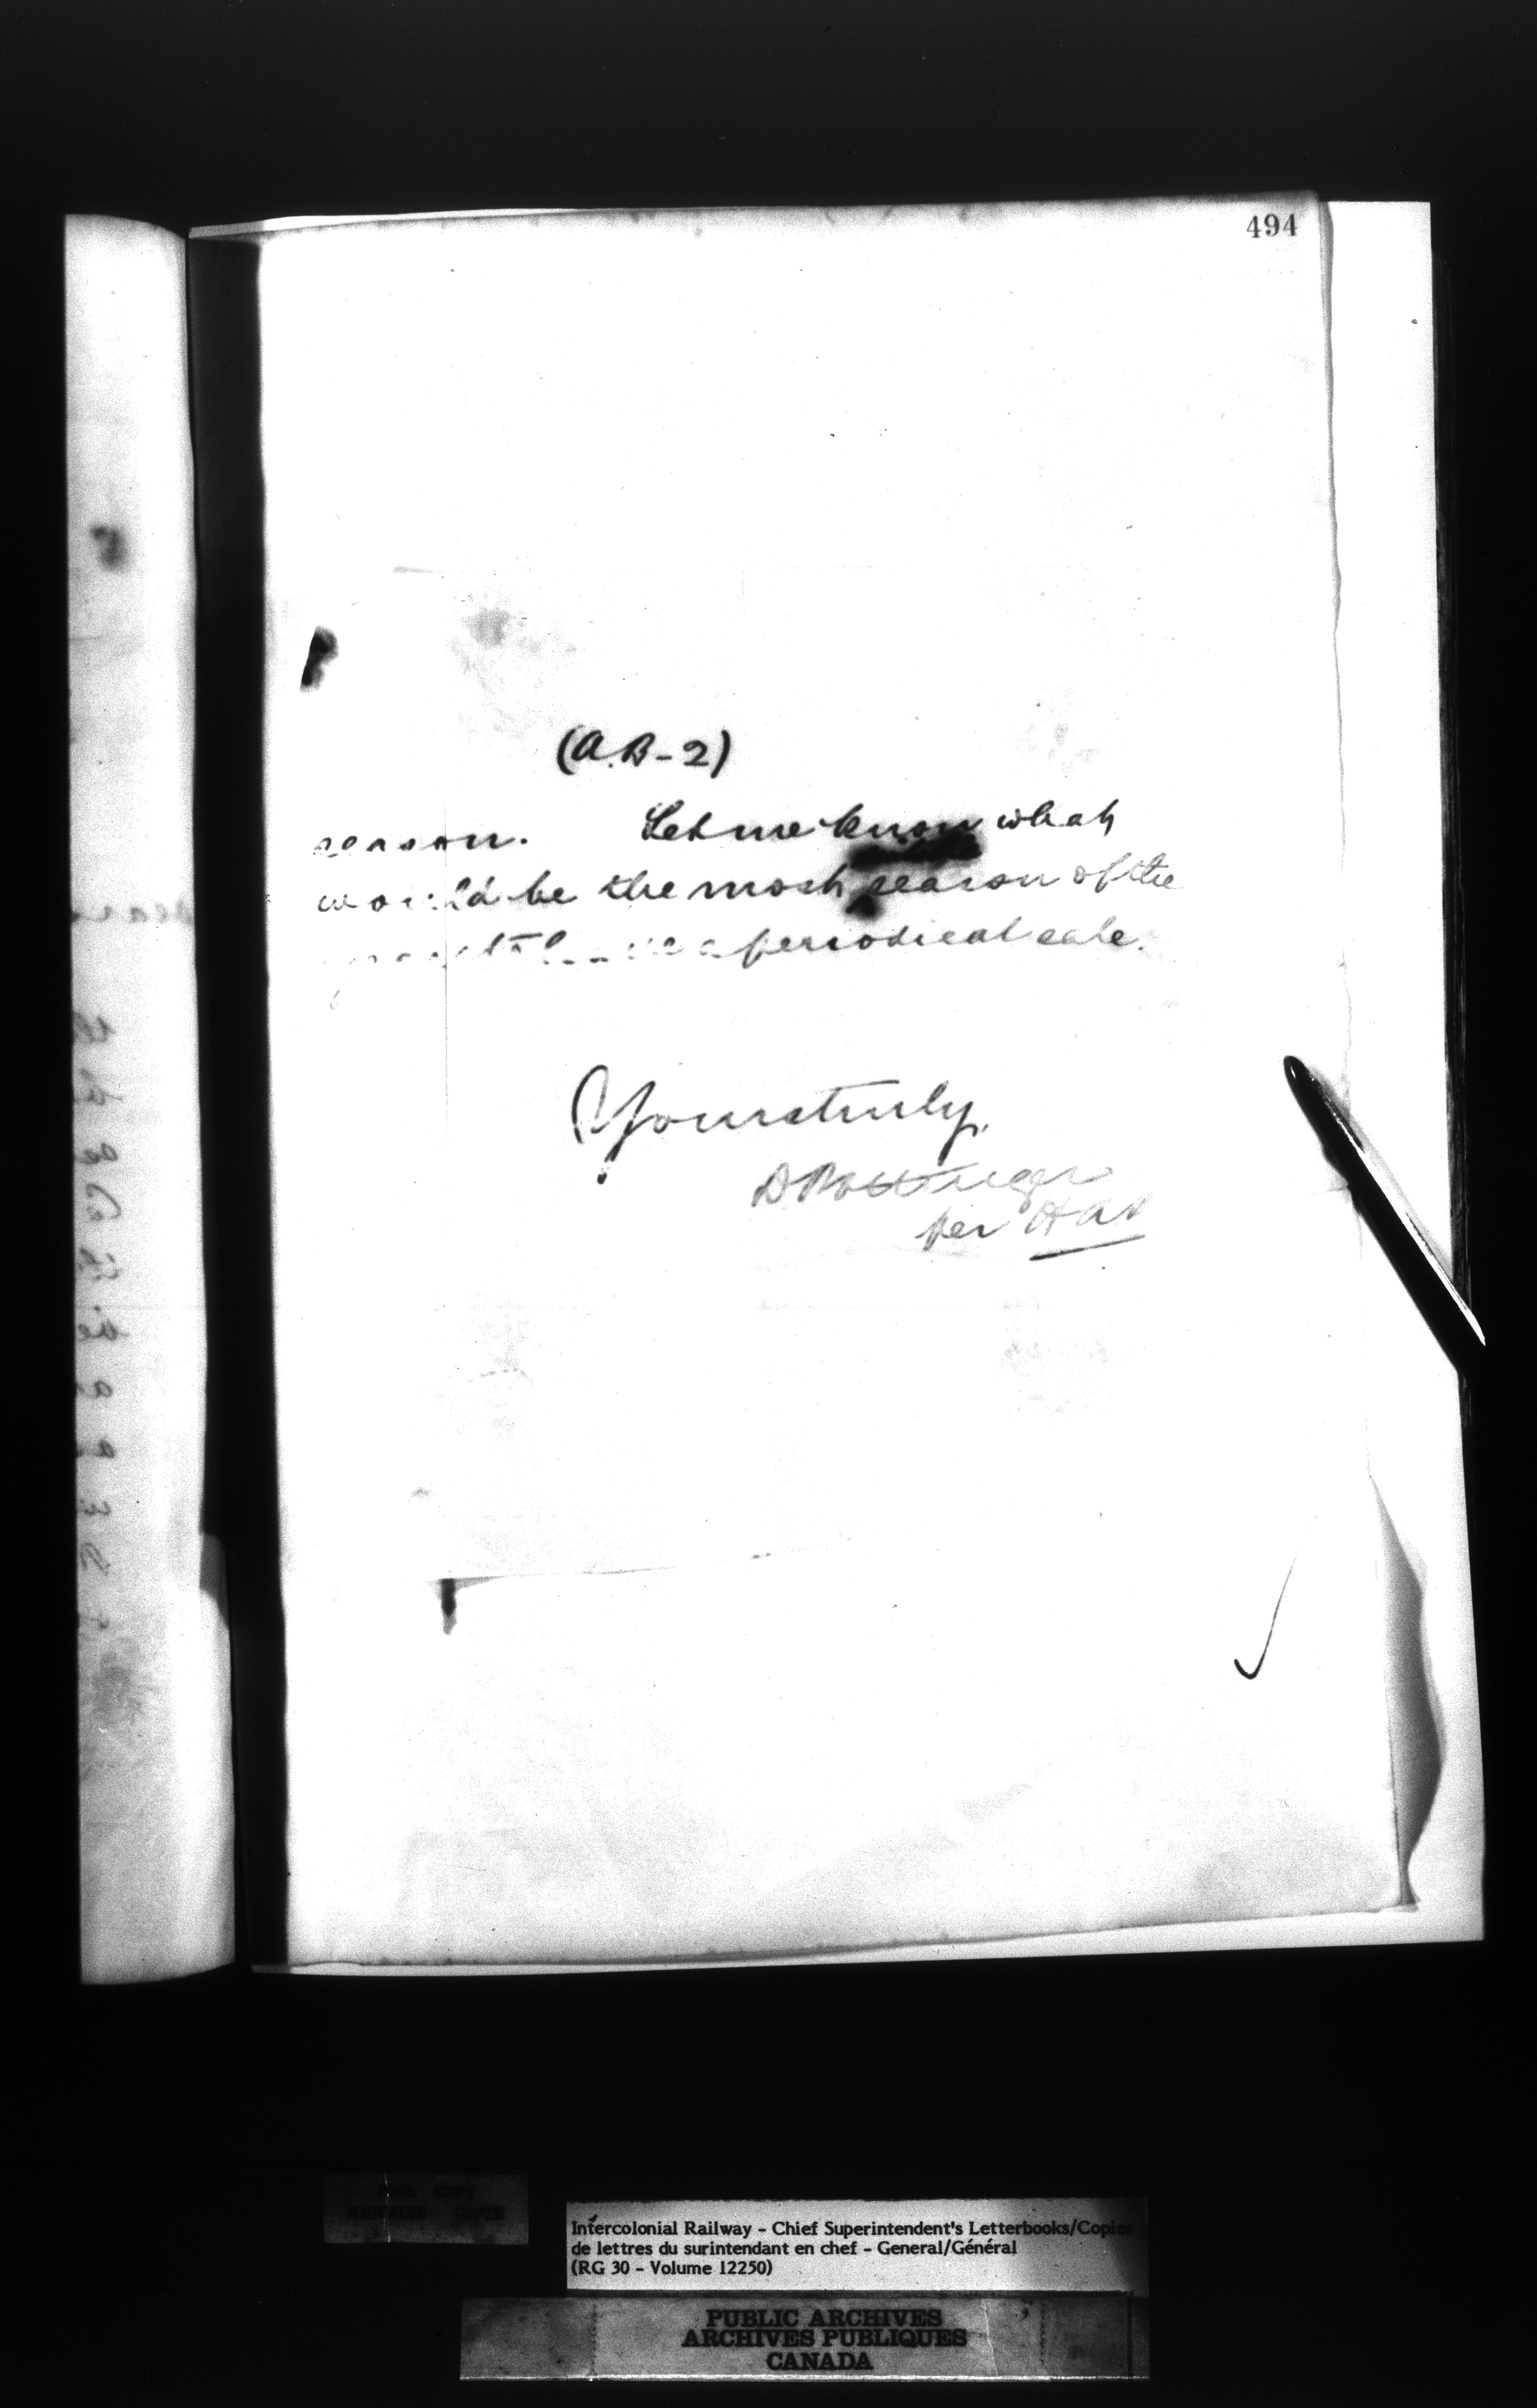 494
(A.B-2)
season. Let me know what
would be the most season of the
a periodical sale.
Yours truly,
D Pottinger
per
Intercolonial Railway - Chief Superintendent's Letterbooks/Copies
de lettres du surintendant en chef - General/Général
(RG 30 - Volume 12250)
PUBLIC ARCHIVES
ARCHIVES PUBLIQUES
CANADA